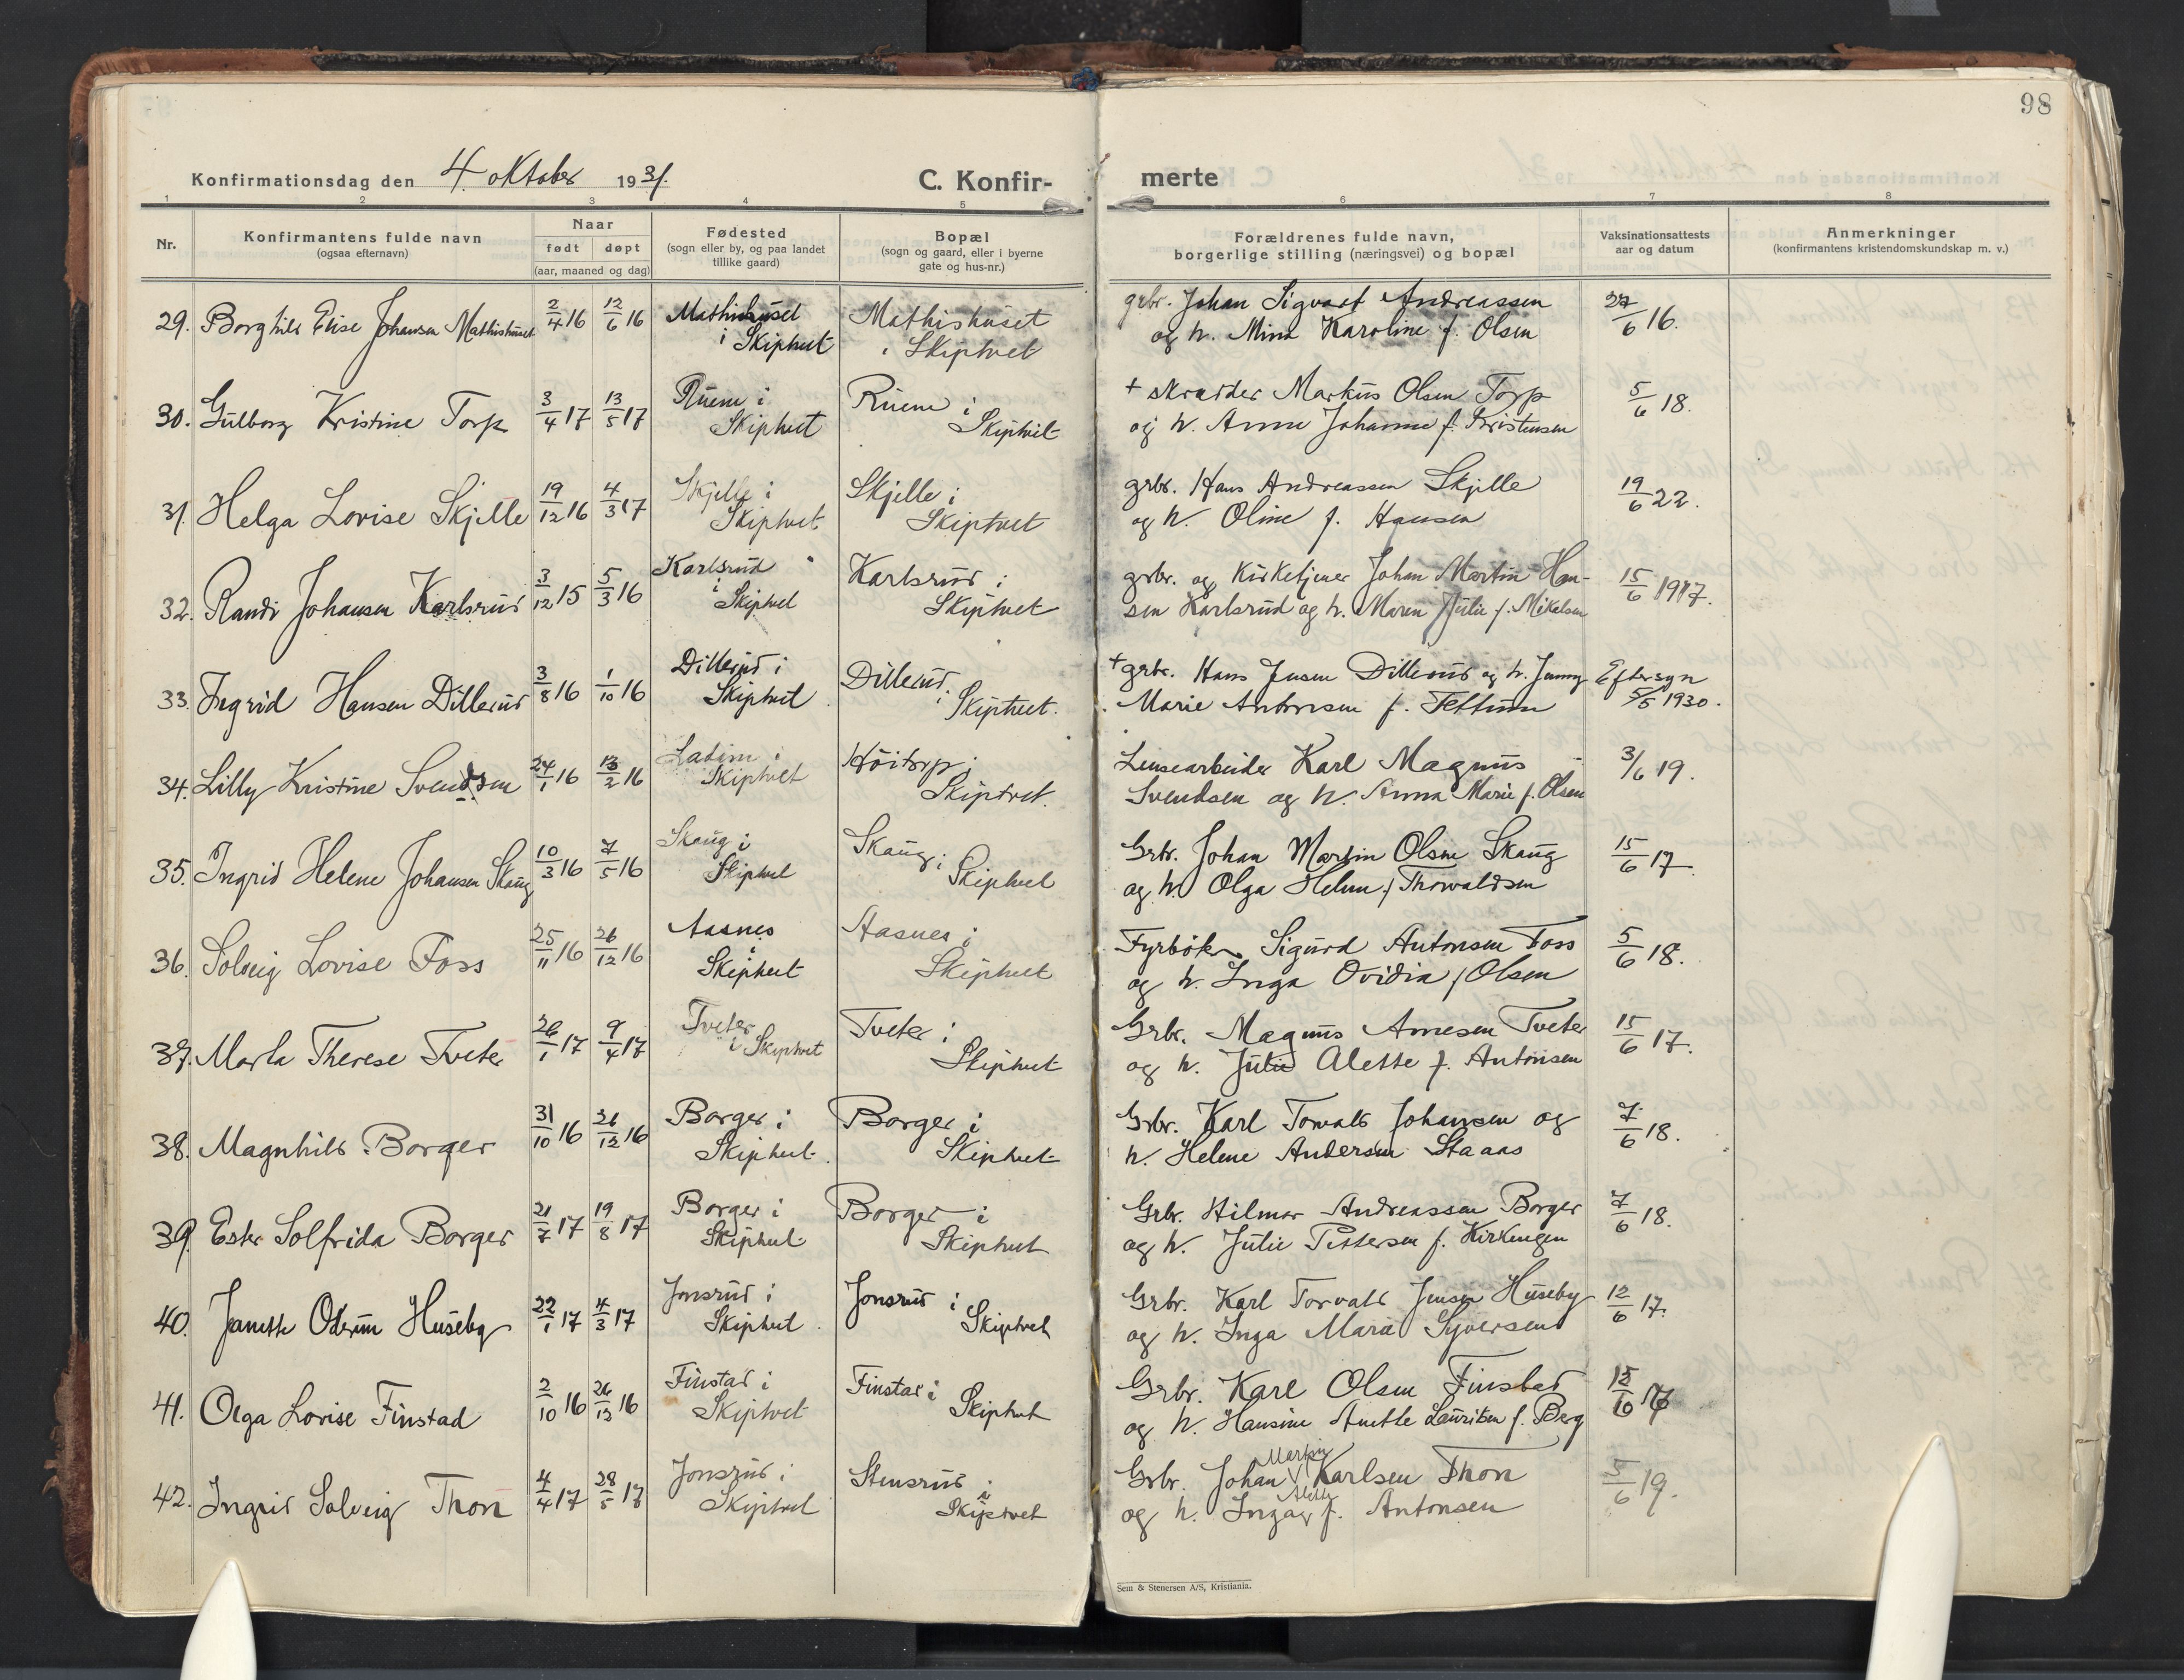 98
Konfirmationsdag den 4. oktober 1931.
C. Konfir-
merte
1 2 3 4 5 6 7 8
Nr.
Konfirmantens fulde navn
(ogsaa efternavn)
Naar
født døpt
(aar, maaned og dag)
Fødested
(sogn eller by, og paa landet
tillike gaard)
Bopæl
(sogn og gaard, eller i byerne
gate og hus-nr.)
Forældrenes fulde navn,
borgerlige stilling (næringsvei) og bopæl
Vaksinationsattests
aar og datum
Anmerkninger
(konfirmantens kristendomskundskap m. v.)
29. Borghild Elise Johansen Mathishuset 2/4 16 12/6 16 Mathishuset i Skiptvet Mathishuset i Skiptvet grbr. Johan Sigvart Andreassen 27/6 16.
og h. Mina Karoline f. Olsen
30. Gulborg Kristine Torp 3/4 17 13/5 17 Ruem i Skiptvet Ruem i Skiptvet + skrædder Markus Olsen Torp 5/6 18.
og h. Anne Johanne f. Kristensen
31. Helga Lovise Skjelle 19/12 16 4/3 17 Skjelle i Skiptvet. Skjelle i Skiptvet grbr. Hans Andreassen Skjelle 19/6 22.
og h. Oline f. Hansen
32. Randi Johansen Karlsrud 3/12 15 5/3 16 Karlsrud i Skiptvet Karlsrud i Skiptvet grbr. og Kirketjener Johan Martin Han- 15/6 1917.
sen Karlsrud og h. Maren Julie f. Mikelsen
33. Ingrid Hansen Dillerud 3/8 16 1/10 16 Dillerud i Skiptvet. Dillerud i Skiptvet. + grbr. Hans Jensen Dillerud og h. Jenny Eftersyn
Marie Antonsen f. 5/5 1930.
34. Lilly Kristine Svendsen 24/1 16 13/2 16 i Skiptvet Höitorp i Skiptvet. Lensearbeider Karl Magnus 3/6 19.
Svendsen og h. Anna Marie f. Olsen
35. Ingrid Helene Johansen Skaug 10/3 16 7/5 16 Skaug i Skiptvet Skaug i Skiptvet Grbr. Johan Martin Olsen Skaug 15/6 17.
og h. Olga Helene f. Thorvaldsen
36. Solveig Lovise Foss 25/11 16 26/12 16 Aasnes i Skiptvet Aasnes i Skiptvet Fyrböter Sigurd Antonsen Foss 5/6 18.
og h. Inga Ovidia f. Olsen
37. Marta Therese Tveter 26/1 17 9/4 17 Tveter i Skiptvet Tveter i Skiptvet Grbr. Magnus Arnesen Tveter 15/6 17.
og h. Julie Alette f. Antonsen
38. Magnhild Borger 31/10 16 26/12 16 Borger i Skiptvet. Borger i Skiptvet Grbr. Karl Torvald Johansen og 7/6 18.
h. Helene Andersen Staaas
39. Ester Solfrida Borger 21/7 17 19/8 17 Borger i Skiptvet Borger i Skiptvet Grbr. Hilmar Andreassen Borger 7/6 18.
og h. Julie Pettersen f. Kirkengen
40. Janette Huseby 22/1 17 4/3 17 Jonsrud i Skiptvet. Jonsrud i Skiptvet Grbr. Karl Torvald Jensen Huseby 12/6 17.
og h. Inga Marie Syversen
41. Olga Lovise Finstad 2/10 16 26/12 16 Finstad i Skiptvet Finstad i Skiptvet Grbr. Karl Olsen Finstad
og h. Hansine Anette Lauritsen f. Berg
42. Ingrid Solveig Thon 4/4 17 28/5 17 Jonsrud i Skiptvet Stensrud i Skiptvet Grbr. Johan Martin Karlsen Thon 5/6 19.
og h. Inga Alette f. Antonsen
Sem & Stenersen A/S, Kristiania.